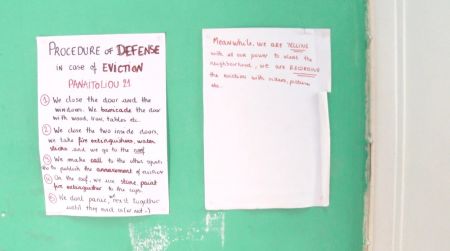 PROCEDURE OF DEFENSE
in case of EVICTION
PANAITOLIOU 21
1 We close the door and the
windows. We barricade the door
with wood, iron, tables etc.
2 We close the two inside doors,
we take fire extinguishers, water
and we go to the roof.
3 We make call to the other squats
to publish the announcement of eviction
4 On the roof, we use stone, paint
fire extinguisher to the cops.
5 We don't panic, we resist together
until they
Meanwhile, we are YELLING
with all our power to alert the
neighborhood, we are RECORDING
the eviction with videos, pictures
etc.